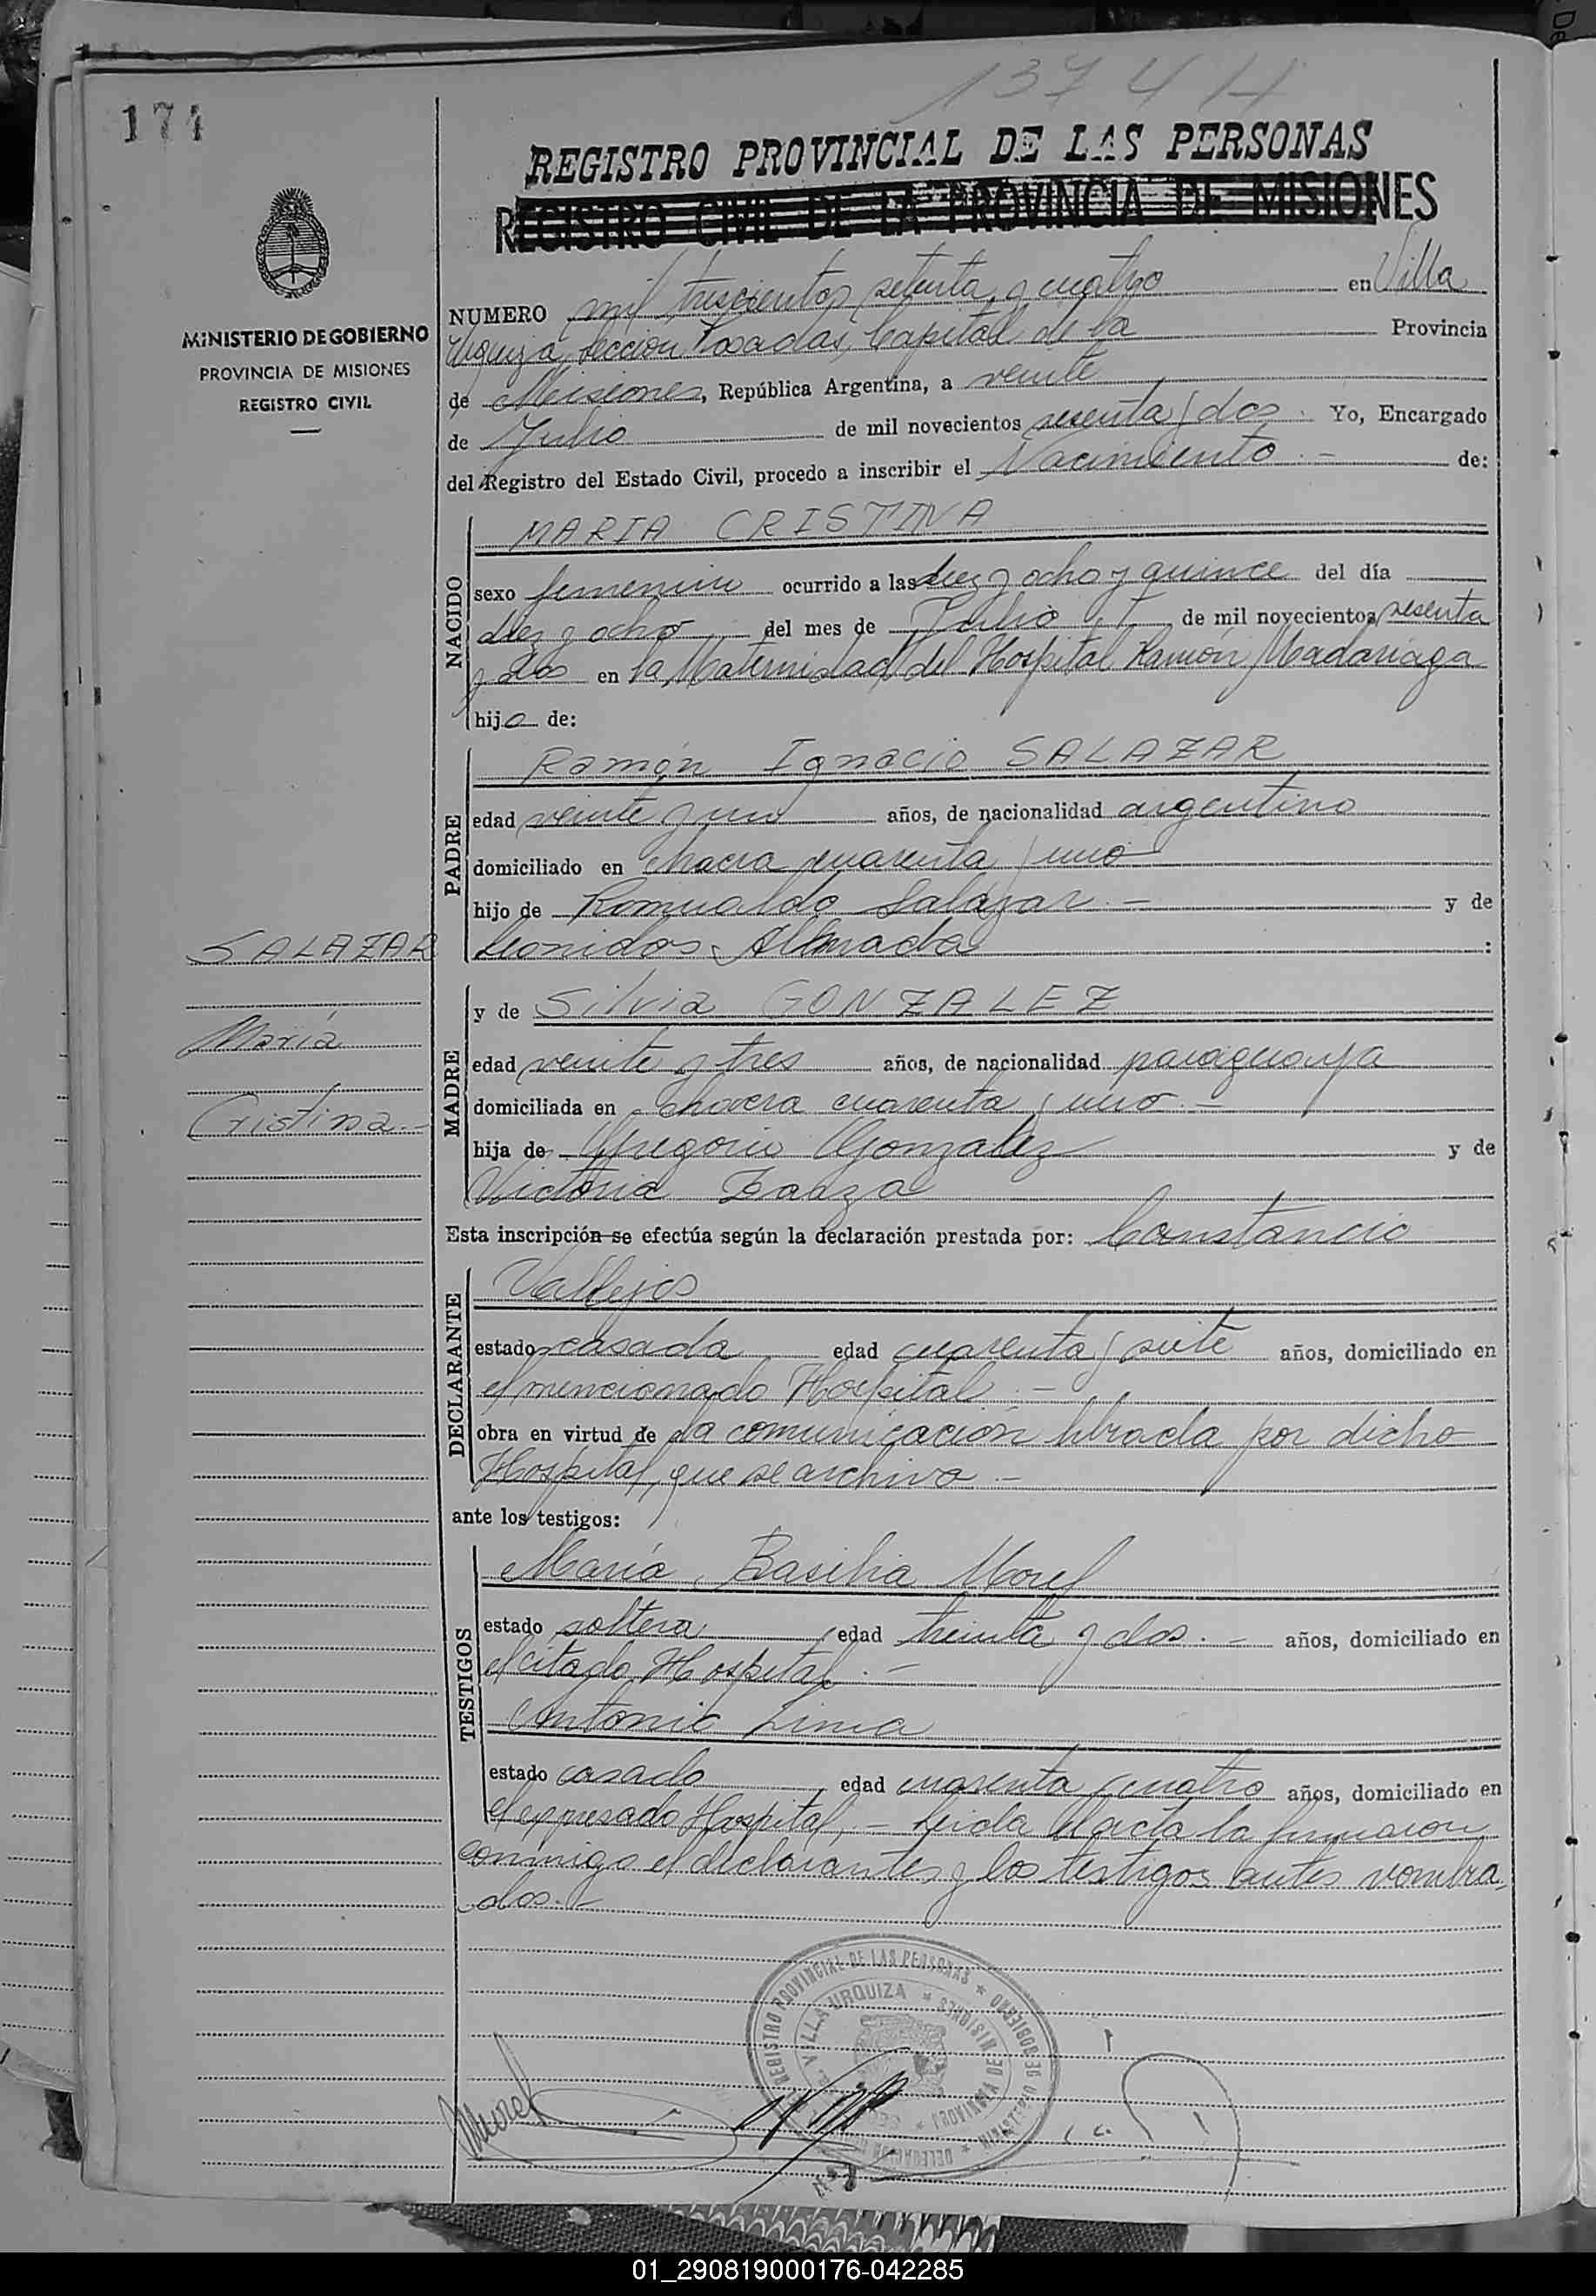 1374 H
174
REGISTRO PROVINCIAL DE LAS PERSONAS
REGISTRO CIVIL DE LA PROVINCIA DE MISIONES
MINISTERIO DE GOBIERNO
PROVINCIA DE MISIONES
REGISTRO CIVIL
NUMERO mil trescientos setenta y cuatro en Villa
Urquiza, sección Posadas, Capital de la Provincia
de Misiones, República Argentina, a veinte
de Julio de mil novecientos sesenta y dos. Yo, Encargado
del Registro del Estado Civil, procedo a inscribir el Nacimiento.- de:
NACIDO
MARIA CRISTINA
sexo femenino ocurrido a las diez y ocho y quince del día
diez y ocho del mes de Julio de mil novecientos sesenta
y dos en la Maternidad del Hospital Ramón Madariaga
hija de:
PADRE
Ramón Ignacio SALAZAR
edad veinte y un años, de nacionalidad argentino
domiciliado en chacra cuarenta y uno
hijo de Romualdo Salazar.- y de
Leonidas Almada :
SALAZAR
María
Cristina.-
MADRE
y de Silvia GONZALEZ
edad veinte y tres años, de nacionalidad paraguaya
domiciliada en chacra cuarenta y uno.-
hija de Gregorio Gonzalez y de
Victoria
Esta inscripción se efectúa según la declaración prestada por: Constancio
DECLARANTE
Vallejos
estado casada edad cuarenta y siete años, domiciliado en
el mencionado Hospital.-
obra en virtud de la comunicación librada por dicho
Hospital, que se archiva.-
ante los testigos:
TESTIGOS
María Basilia Morel
estado soltera edad treinta y dos.- años, domiciliado en
el citado Hospital.-
Antonio Lima
estado casado edad cuarenta y cuatro años, domiciliado en
el expresado Hospital,.- Leida el acta la firmaron
conmigo el declarante y los testigos antes nombra-
dos.-
REGISTRO PROVINCIAL DE LAS PERSONAS * MINISTERIO DE GOBIERNO *
VILLA URQUIZA * PROVINCIA DE MISIONES *
Morel
01_290819000176-042285